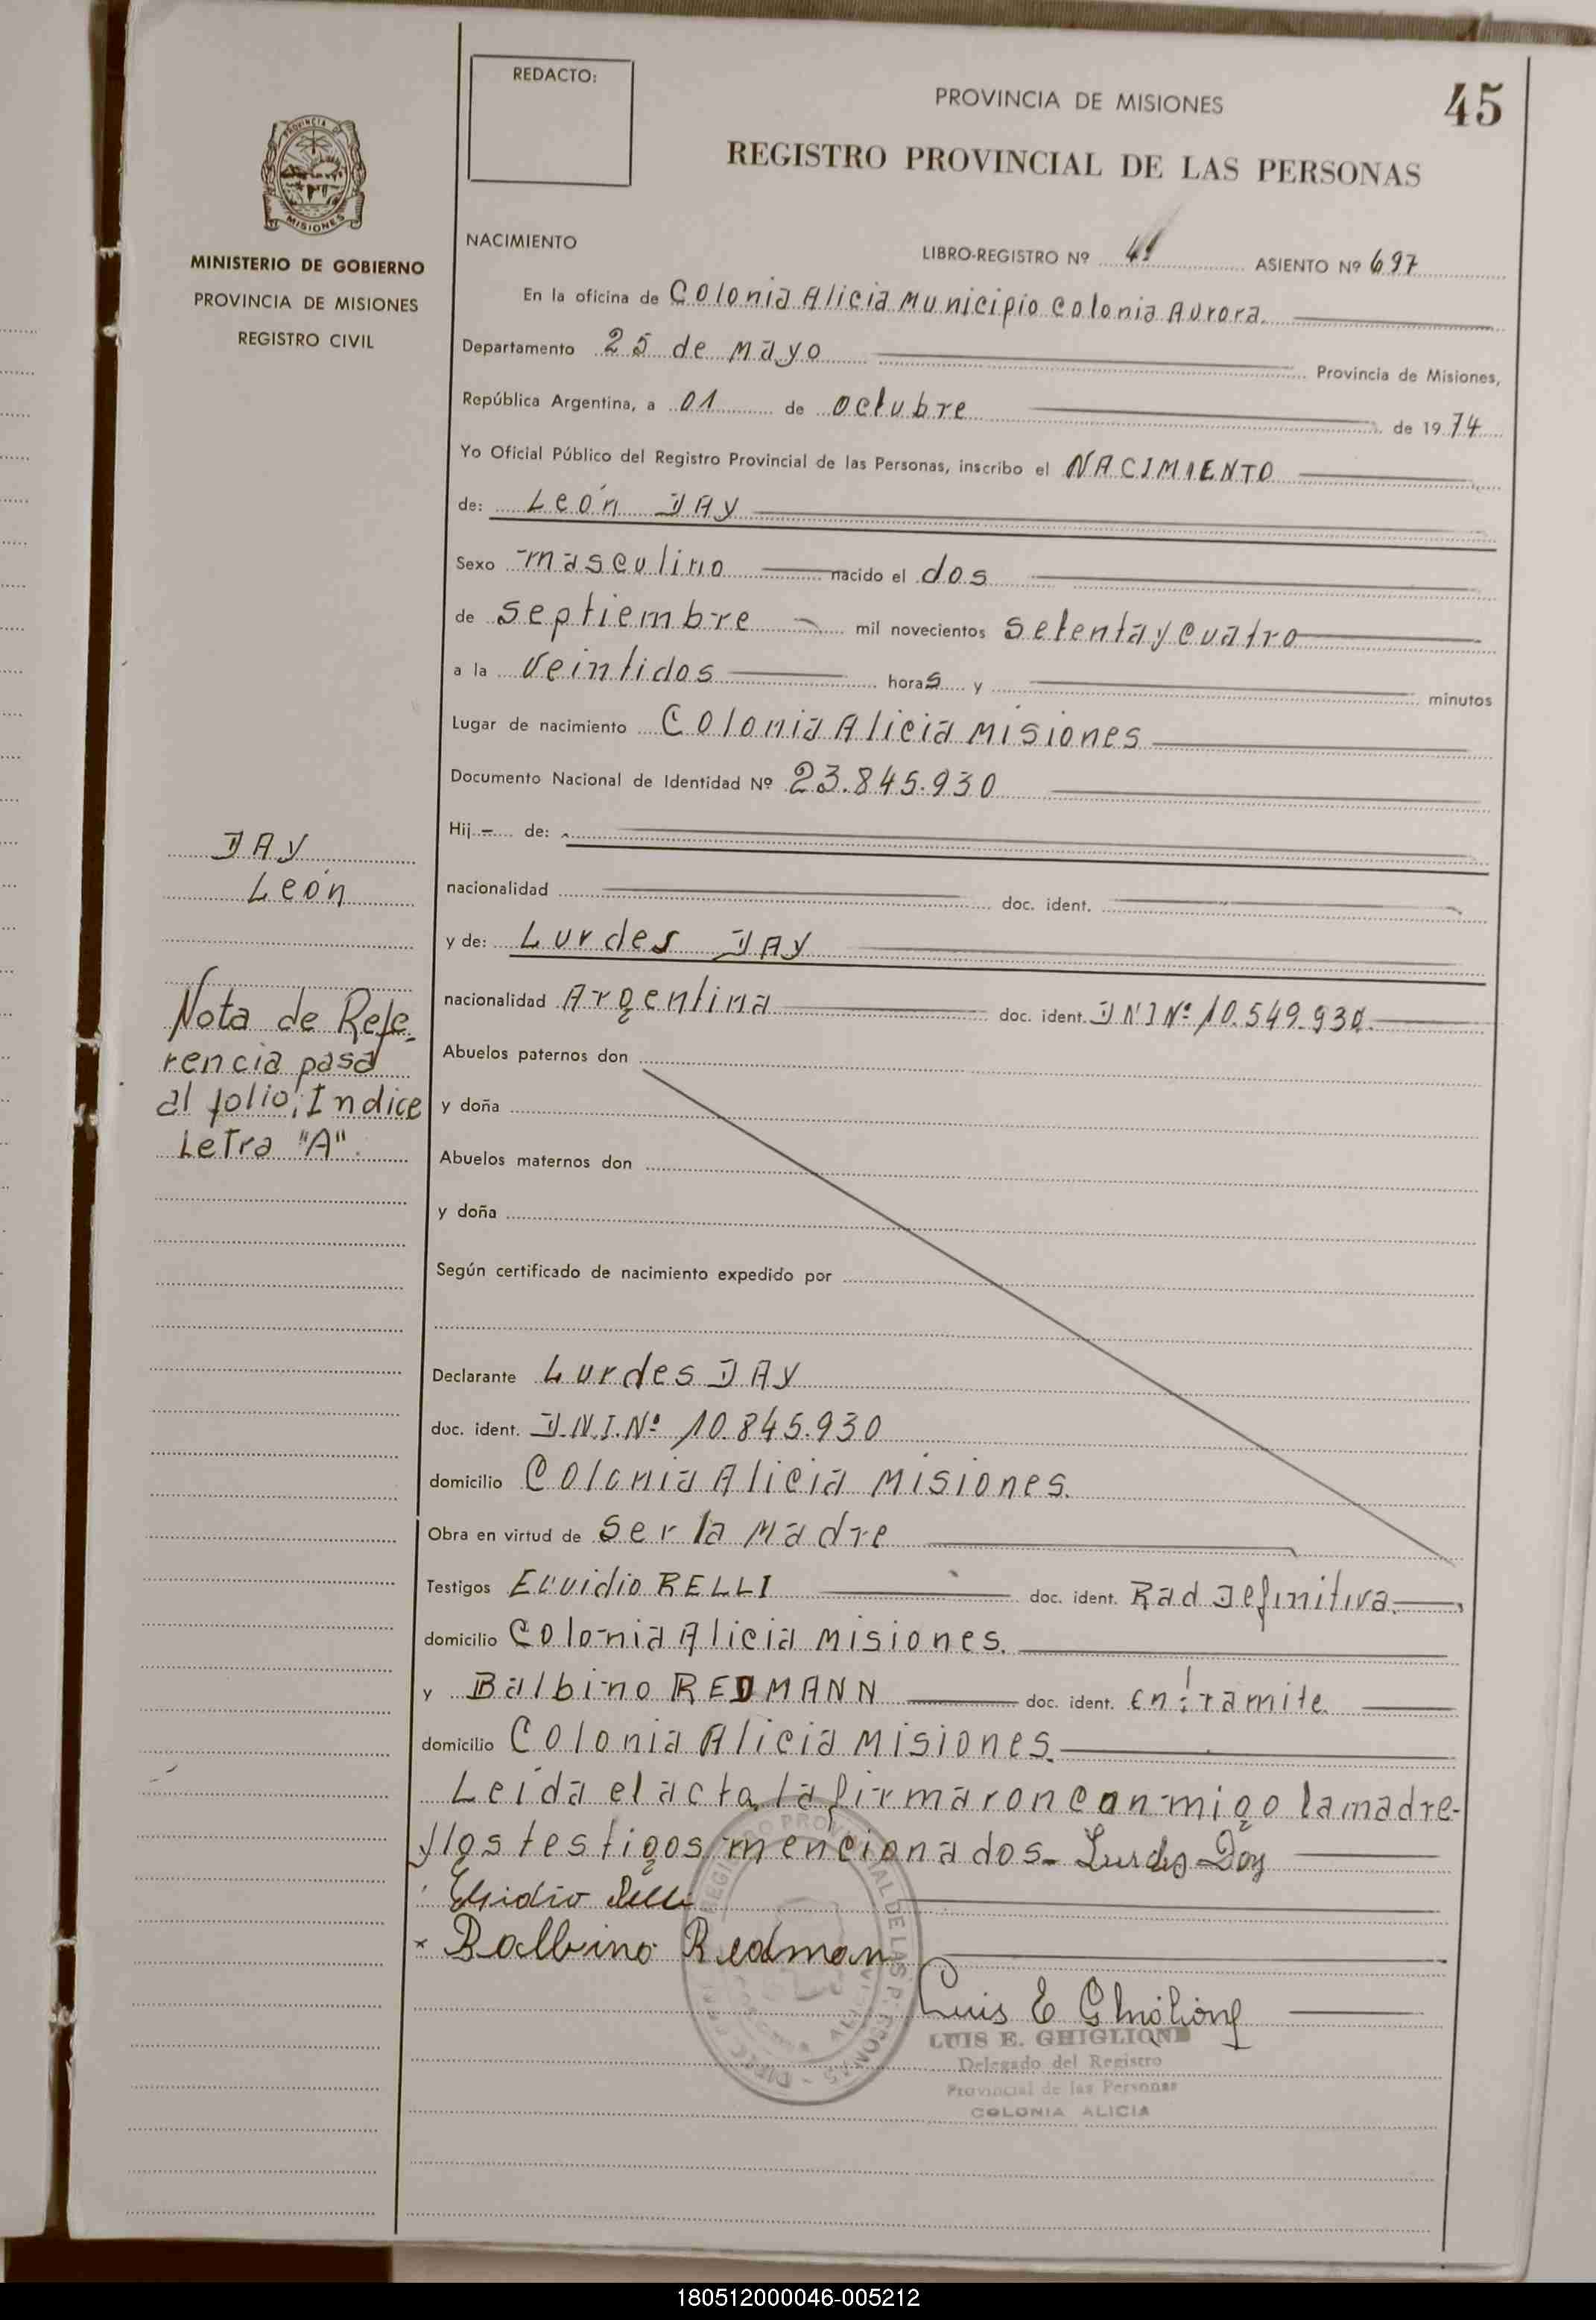 REDACTO:
PROVINCIA DE MISIONES
45
REGISTRO PROVINCIAL DE LAS PERSONAS
PROVINCIA DE
MISIONES
MINISTERIO DE GOBIERNO
PROVINCIA DE MISIONES
REGISTRO CIVIL
NACIMIENTO
LIBRO-REGISTRO Nº 41 ASIENTO Nº 697
En la oficina de Colonia Alicia Municipio Colonia Aurora.
Departamento 25 de Mayo Provincia de Misiones,
República Argentina, a 01 de octubre de 1974
Yo Oficial Público del Registro Provincial de las Personas, inscribo el NACIMIENTO
de: León DAY
Sexo masculino nacido el dos
de septiembre mil novecientos setenta y cuatro
a la veintidos horas y minutos
Lugar de nacimiento Colonia Alicia Misiones
Documento Nacional de Identidad Nº 23.845.930
Hij - de:
nacionalidad doc. ident.
y de: Lurdes DAY
nacionalidad Argentina doc. ident. DNI Nº 10.549.930.
Abuelos paternos don
y doña
Abuelos maternos don
y doña
Según certificado de nacimiento expedido por
Declarante Lurdes DAY
doc. ident. D.N.I. Nº 10.845.930
domicilio Colonia Alicia Misiones.
Obra en virtud de ser la Madre
Testigos RELLI doc. ident. Rad Definitiva.
domicilio Colonia Alicia Misiones.
y Balbino REDMANN doc. ident. en tramite.
domicilio Colonia Alicia Misiones.
Leída el acta, la firmaron conmigo la madre
y los testigos mencionados. Lurdes Day
Balbino Redman
Luis E Ghiglione
LUIS E. GHIGLIONE
Delegado del Registro
Provincial de las Personas
COLONIA ALICIA
DAY
León
Nota de Refe-
rencia pasa
al folio, Indice
Letra "A".
180512000046-005212